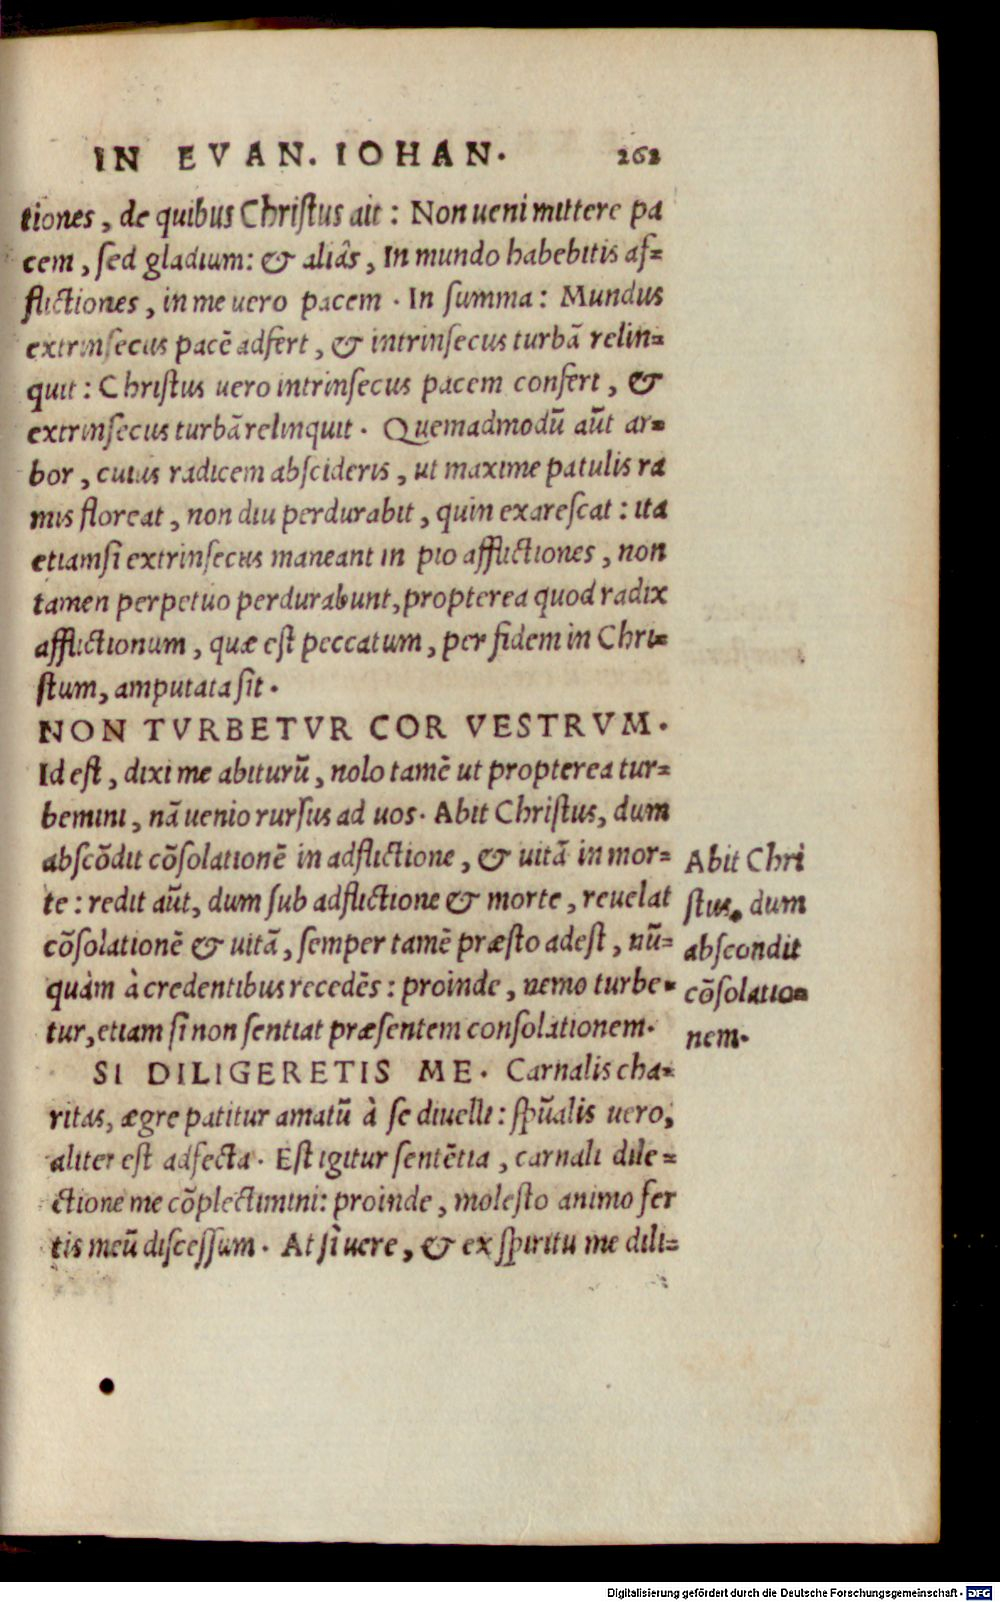 IN EVAN. IOHAN. 262
tiones, de quibus Christus ait: Non ueni mittere pa
cem, sed gladium: & aliâs, In mundo habebitis af=
flictiones, in me uero pacem. In summa: Mundus
extrinsecus pacē adfert, & intrinsecus turbā relin=
quit: Christus uero intrinsecus pacem confert, &
extrinsecus turbā relinquit. Quemadmodū aūt ar=
bor, cuius radicem abscideris, ut maxime patulis ra
mis floreat, non diu perdurabit, quin exarescat: ita
etiamsi extrinsecus maneant in pio afflictiones, non
tamen perpetuo perdurabunt, propterea quod radix
afflictionum, quæ est peccatum, per fidem in Chri=
stum, amputata sit.
NON TVRBETVR COR VESTRVM.
Id est, dixi me abiturū, nolo tamē ut propterea tur=
bemini, nā uenio rursus ad uos. Abit Christus, dum
abscōdit cōsolationē in adflictione, & uitā in mor=
te: redit aūt, dum sub adflictione & morte, reuelat
cōsolationē & uitā, semper tamē præsto adest, nū=
quàm à credentibus recedēs: proinde, nemo turbe=
tur, etiam si non sentiat præsentem consolationem.
SI DILIGERETIS ME. Carnalis cha=
ritas, ægre patitur amatū à se diuelli: spūalis uero,
aliter est adfecta. Est igitur sentētia, carnali dile=
ctione me cōplectimini: proinde, molesto animo fer
tis meū discessum. At sì uere, & ex spiritu me dili=
Abit Chri
stus, dum
abscondit
cōsolatio=
nem.
Digitalisierung gefördert durch die Deutsche Forschungsgemeinschaft - DFG